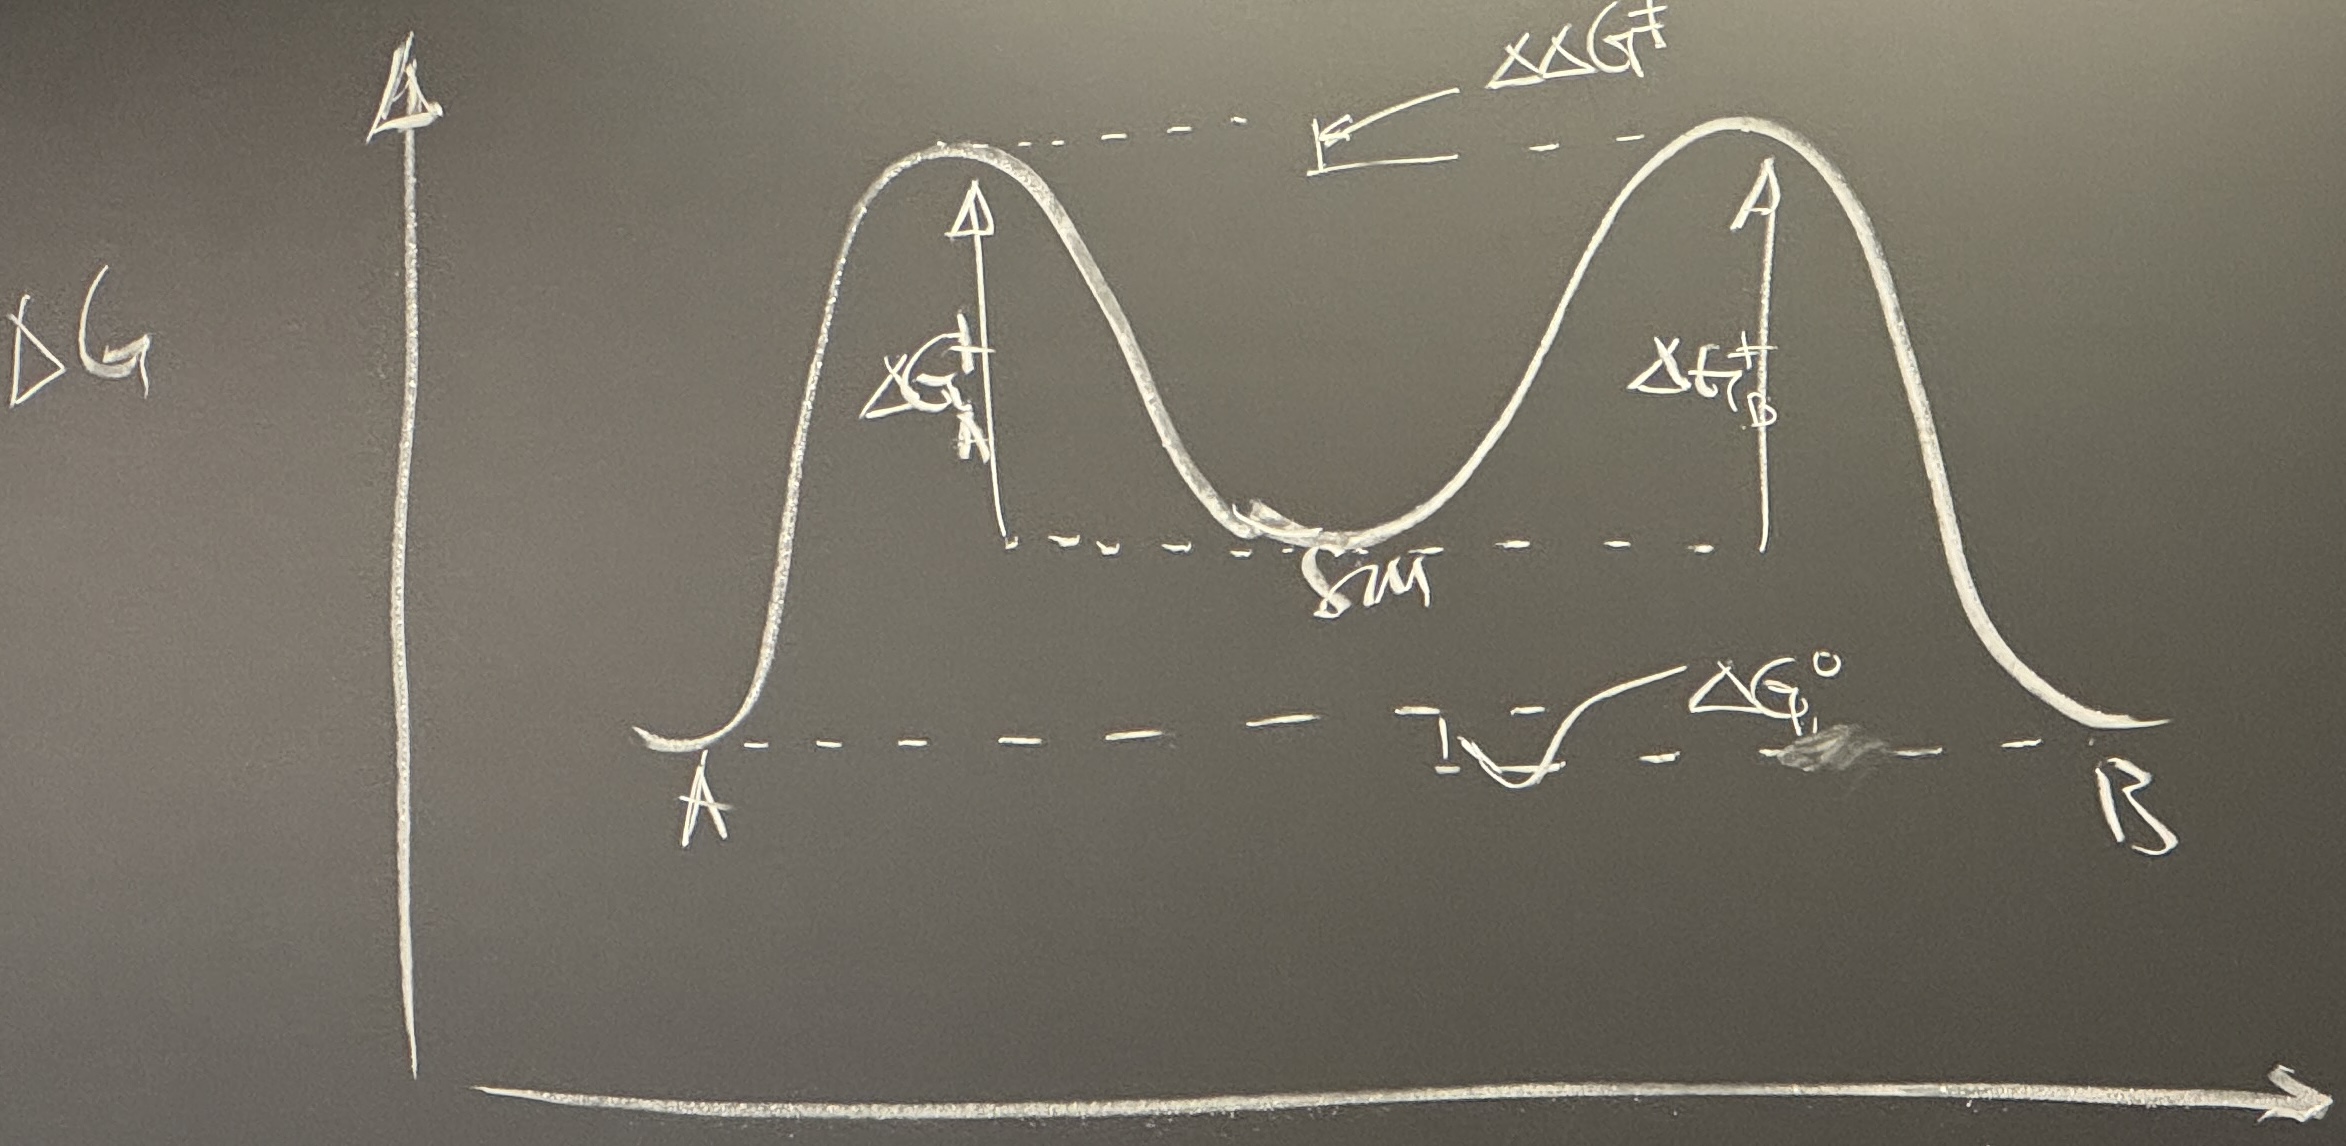 ΔΔG‡
ΔG
ΔG‡A
ΔG‡B
SM
ΔG°
A
B